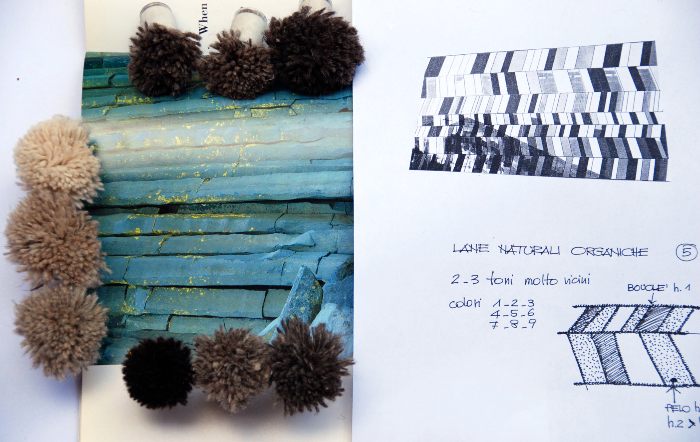 When
LANE NATURALI ORGANICHE 5
2_3 toni molto vicini
colori 1_2_3
4_5_6
7_8_9
BOUCLE' h.1
PELO h
h.2